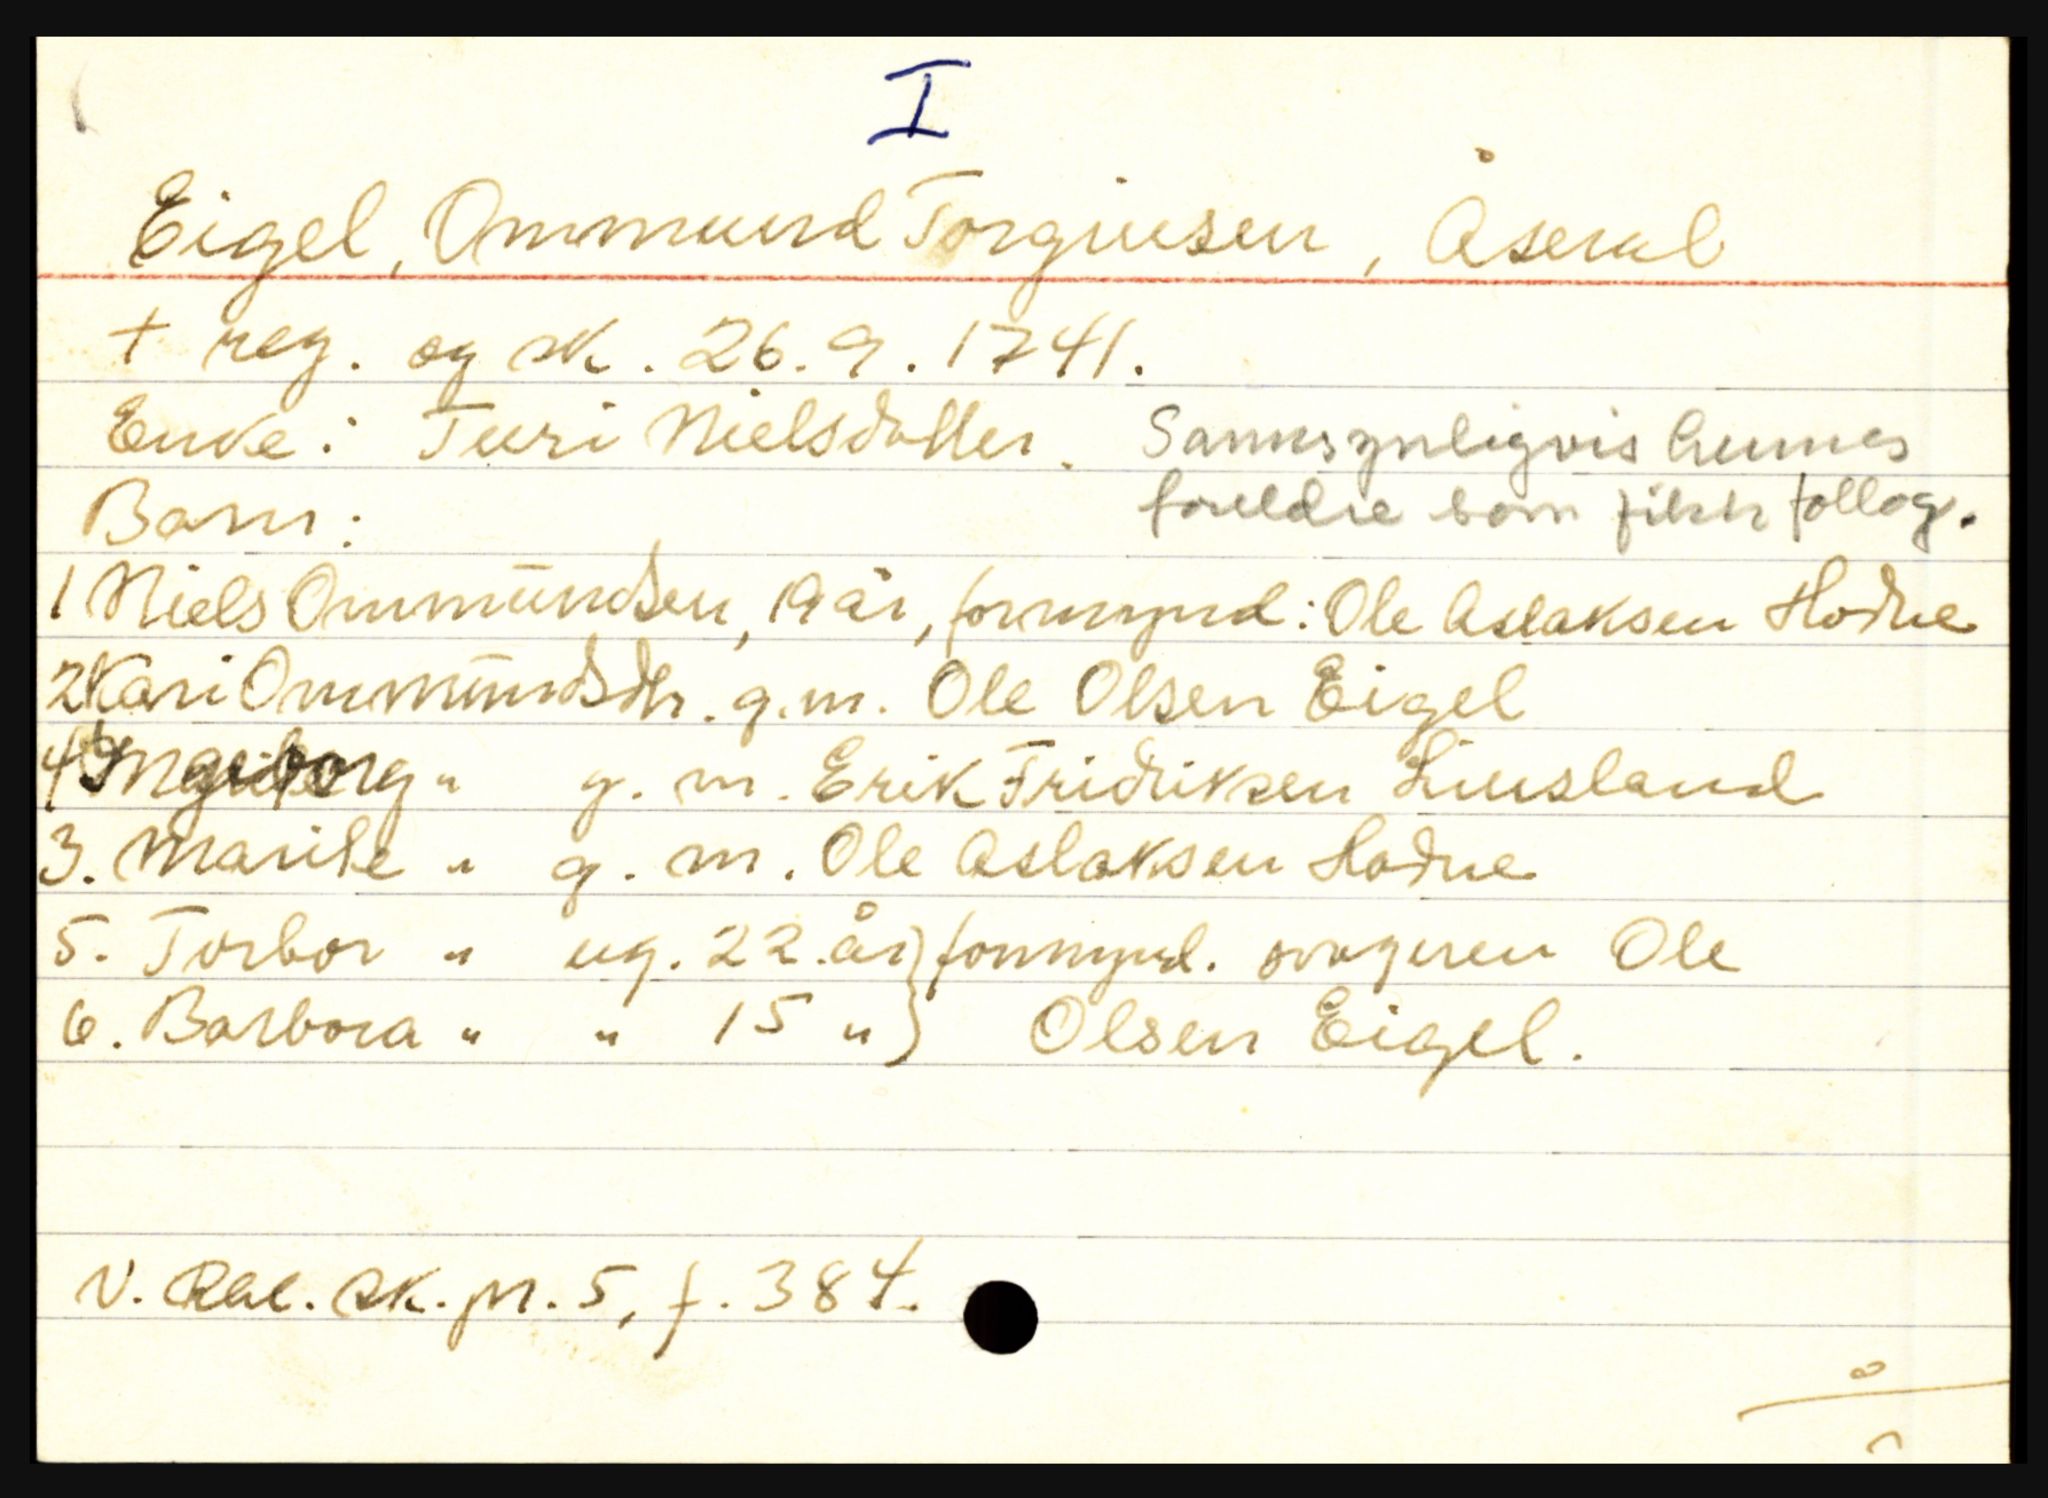 I
Eigel, Ommund Torgiusen, Åseral
† reg. og sk. 26.9.1741.
Enke: Turi Nielsdatter. Sannsynligvis hennes
Barn: foreldre som fikk følog.
1 Niels Ommundsen, 19 år, formynd: Ole Aslaksen Hodne
2 Kari Ommundsdtr. g.m. Ole Olsen Eigel
4 Ingeborg " g.m. Erik Fridriksen Liusland
3. Marite " g.m. Ole Aslaksen Hodne
5. Torbor " ug. 22 år } formynd. svogeren Ole
6. Barbora " " 15 " } Olsen Eigel.
N. Rbl. sk.pr. 5, f. 384.